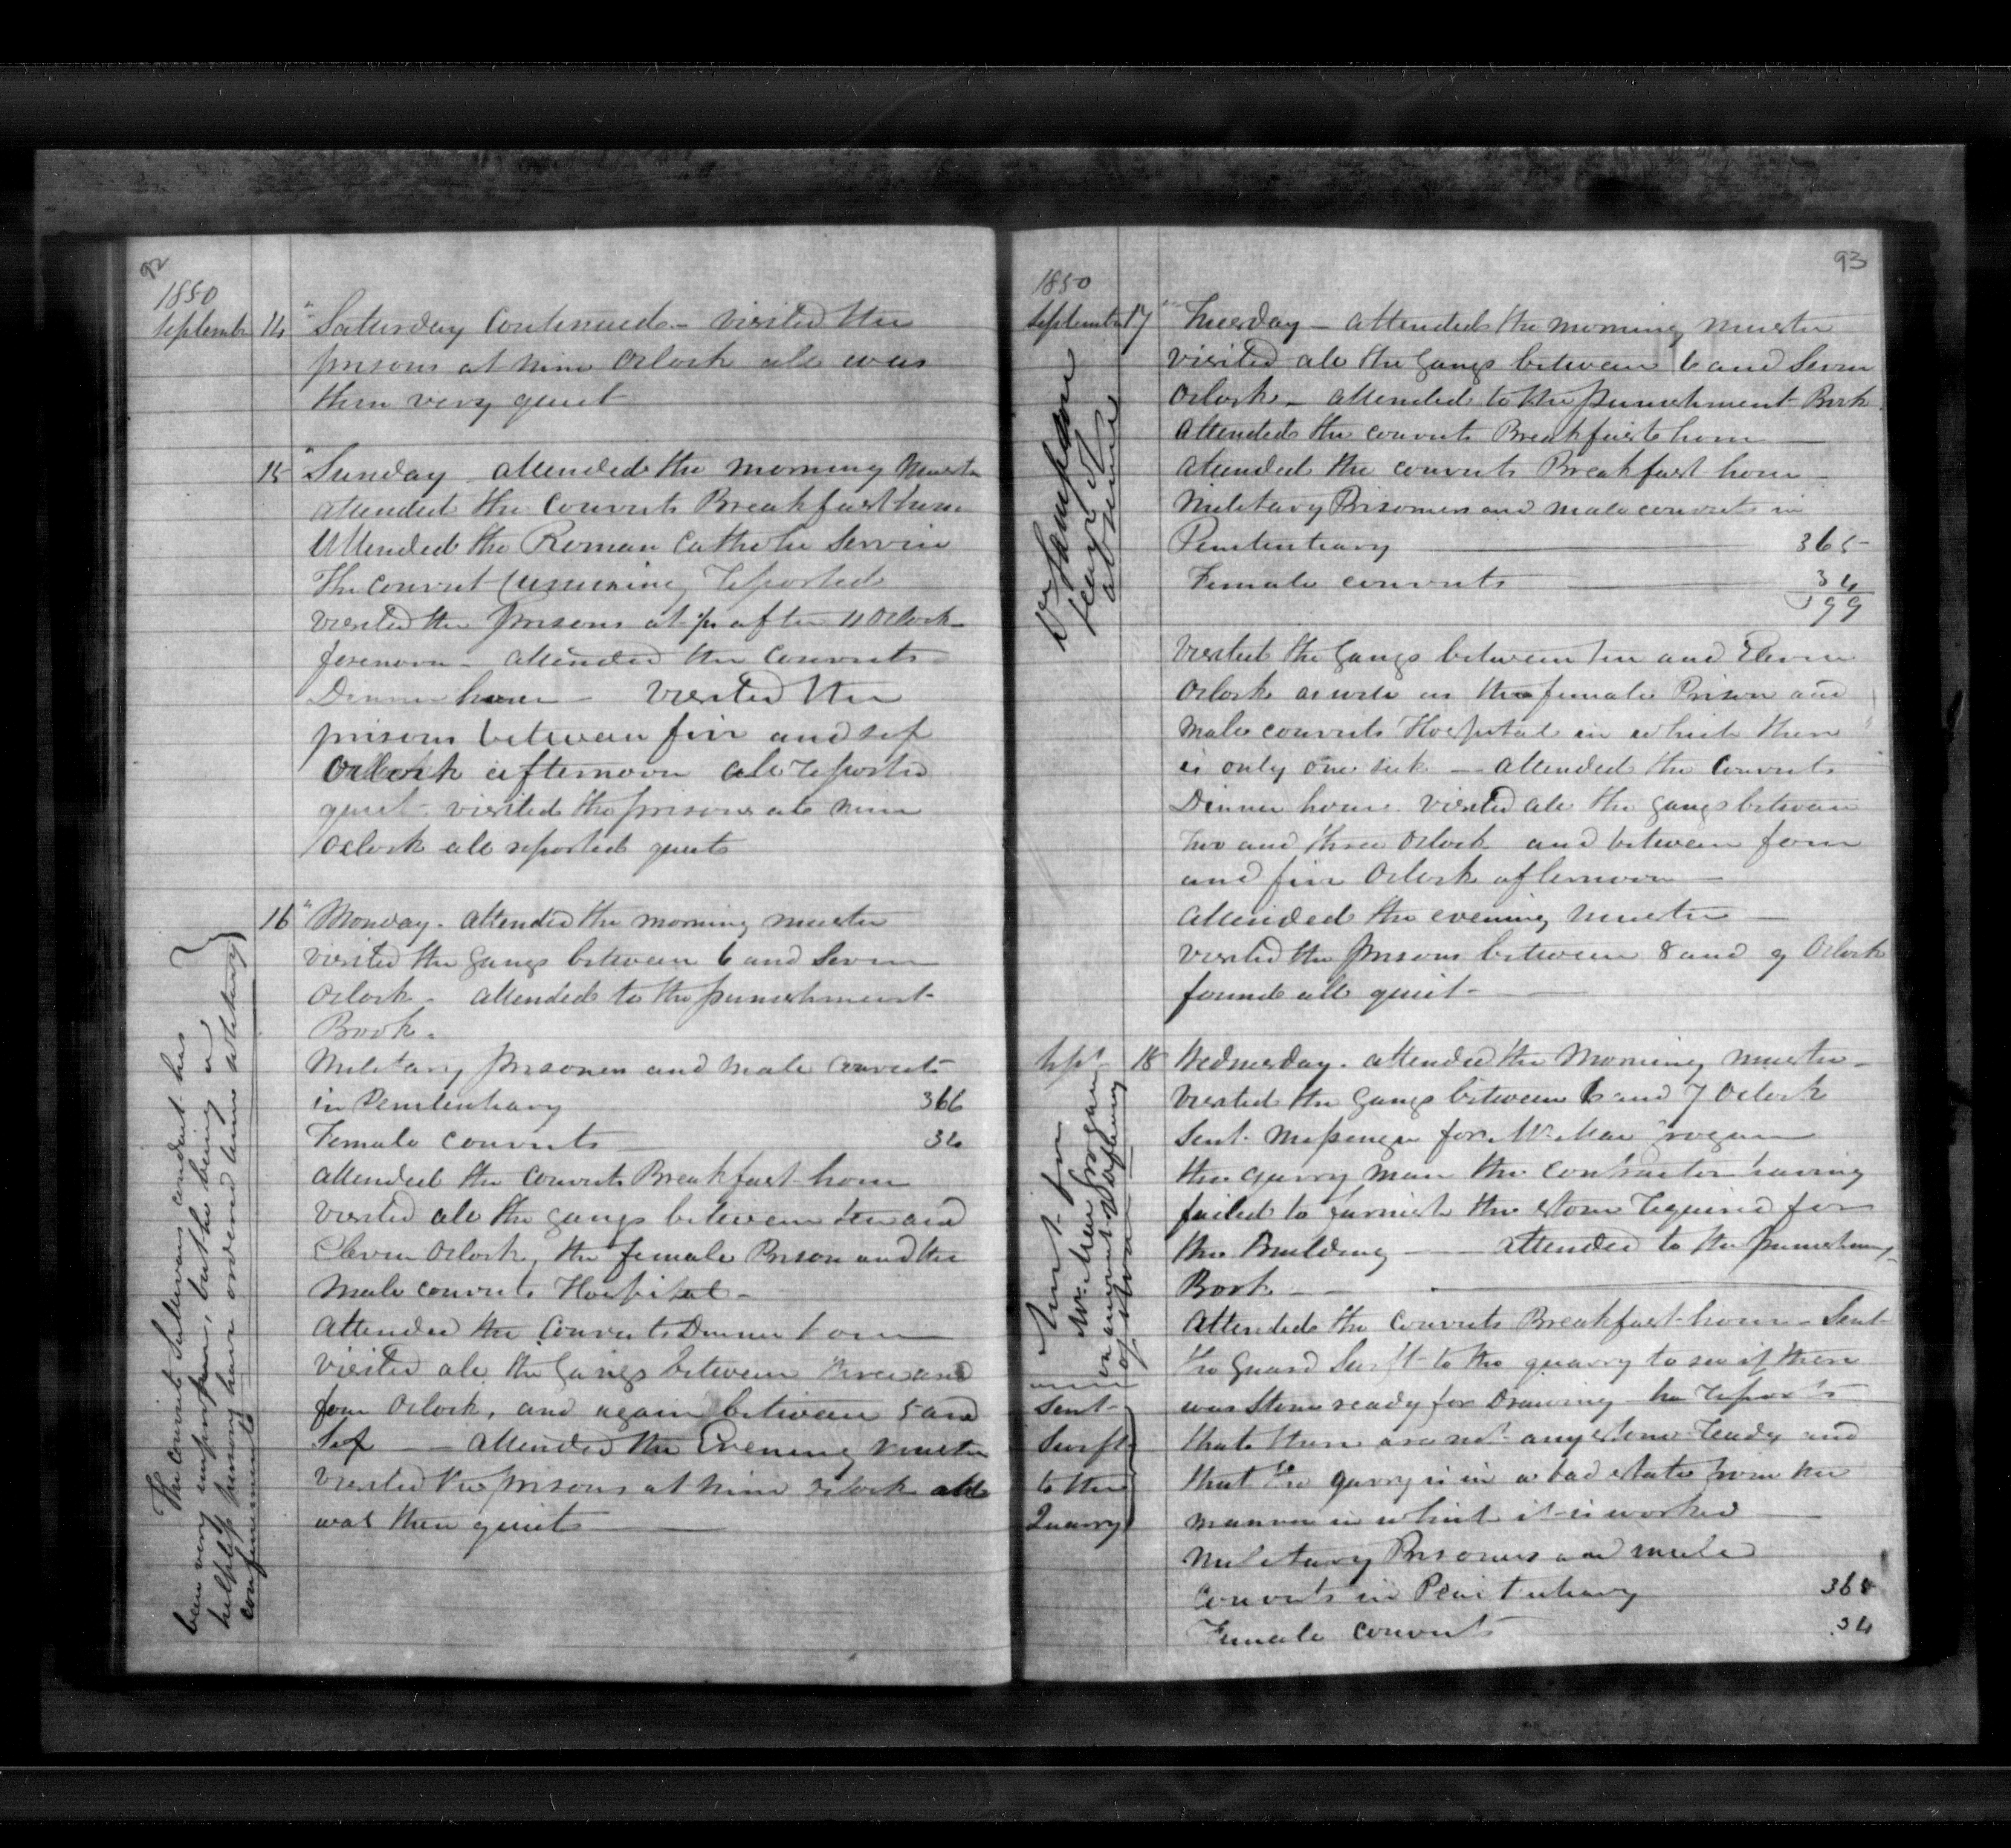 92
1850
September 14 " Saturday Continued - visited the
prisons at nine Oclock all was
then very quiet
15 " Sunday attended the morning Muster
attended the Convicts Breakfast hour
Attended the Roman Catholic Service
The convict reported
visited the prisons at 1/2 after 11 Oclock
forenoon - attended the Convicts
Dinner hour - visited the
prisons between five and six
Oclock afternoon all reported
quiet - visited the prisons at nine
Oclock all reported quiet
16 " Monday. attended the morning muster
visited the gangs between 6 and Seven
Oclock - attended to the punishment
Book.
Military prisoners and Male Convicts
in Penitentiary 366
Female Convicts 34
attended the Convicts Breakfast hour
visited all the gangs between ten and
Eleven Oclock, the female Prison and the
Male convicts Hospital -
Attended the Convicts Dinner hour
visited all the gangs between three and
four Oclock, and again between 5 and
Six - attended the Evening muster
visited the prisons at nine Oclock all
was then quiet
The convict Sullivans conduct has
been very improper, but he being a
helpless person have ordered him solitary
confinement
93
1850
September 17 " Tuesday - attended the morning muster
visited all the gangs between 6 and Seven
Oclock - attended to the punishment Book
Attended the convicts Breakfast hour
attended the convicts Breakfast hour
Military Prisoners and male convicts in
Penitentiary 365
Female convicts 34
399
Dr Sampson
leave of
absence
visited the gangs between ten and Eleven
Oclock as well as the female Prison and
Male convicts Hospital in which there
is only one sick - attended the Convicts
Dinner hour visited all the gangs between
two and three Oclock and between four
and five Oclock afternoon
attended the evening muster
visited the prisons between 8 and 9 Oclock
found all quiet -
Sept 18 Wednesday. attended the Morning muster -
visited the gangs between 6 and 7 Oclock
Sent Messenger for Mr Mac rogan
the quarry man the contractor having
failed to furnish the stone required for
the Building - attended to the punishment
Book -
Sent for
Mr Mac Grogan
on account
of stone
Attended the Convicts Breakfast hour - Sent
the guard Swift to the quarry to see if there
was Stone ready for Drawing - he reports
that there are not any stone ready and
that the quarry is in a bad state from the
manner in which it is worked
Sent
Swift
to the
Quarry
Military Prisoners and male
Convicts in Penitentiary 365
Female Convicts 34